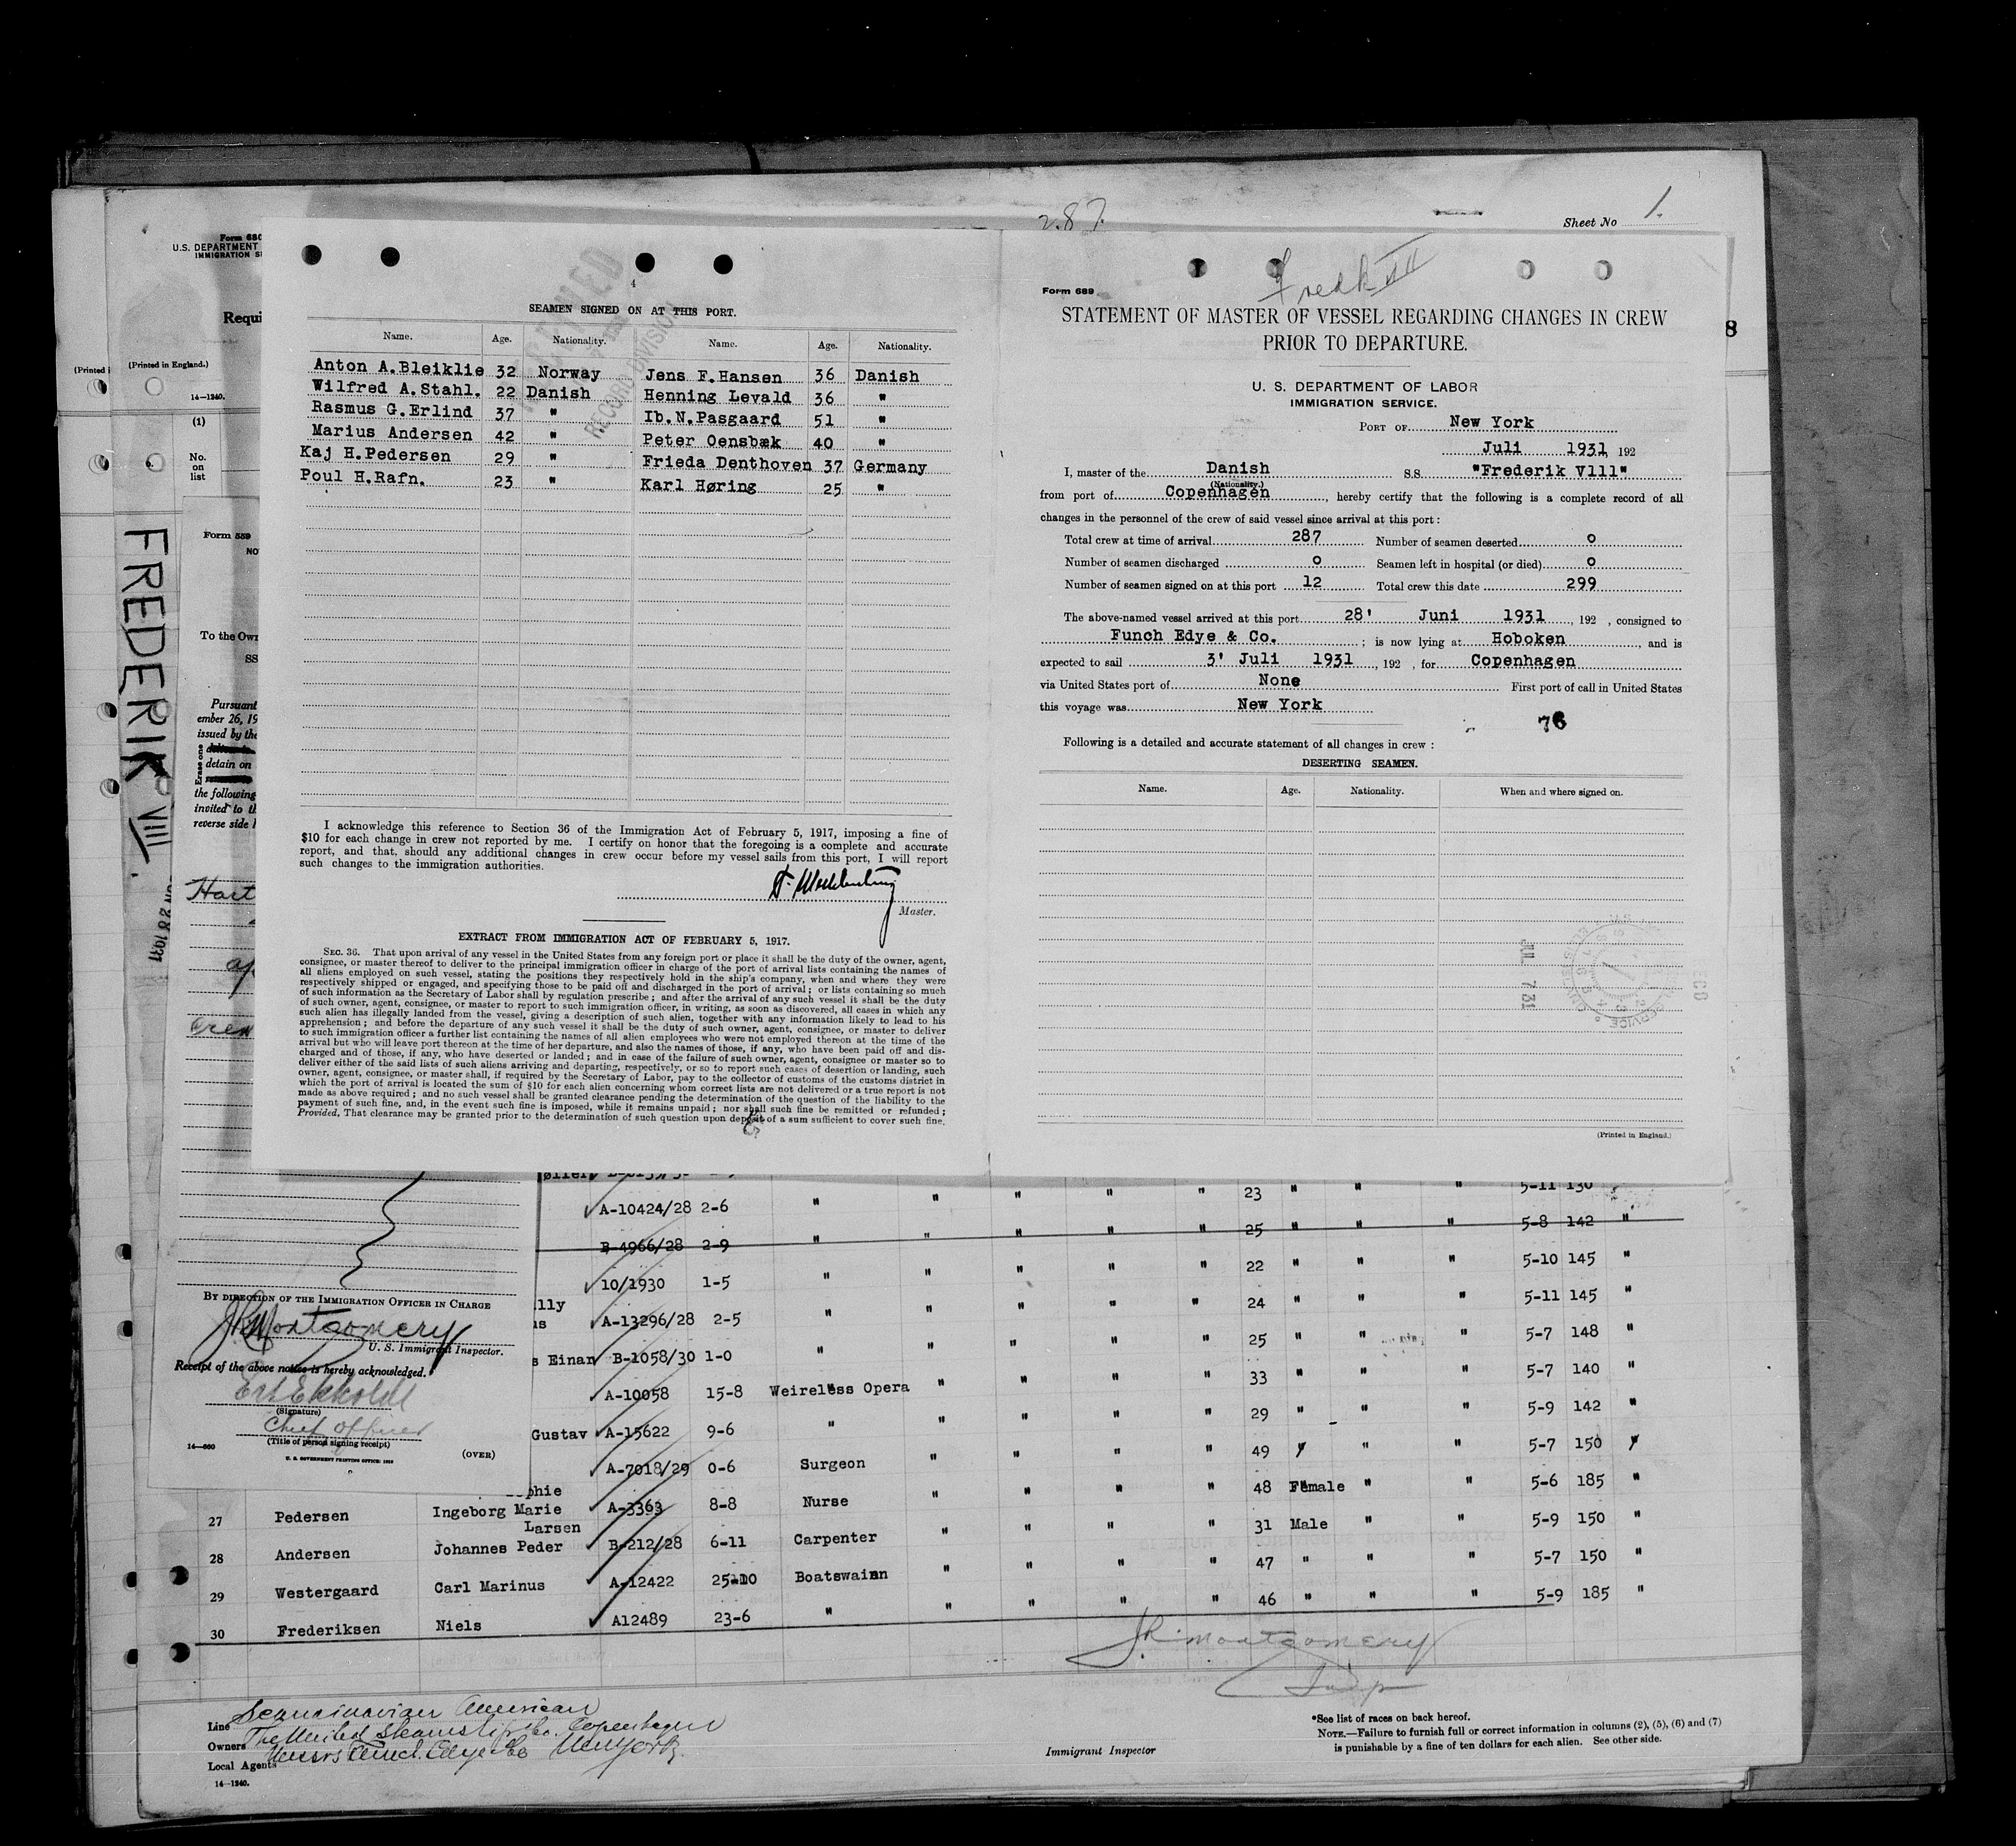 287.
Sheet No 1.
Form 680
U.S. DEPARTMENT
IMMIGRATION
Requi
(Printed in England.)
14-1240.
(1)
No.
on
list
FREDERIK VIII.
Form 559
To the Own
SS
Pursuant
ember 26, 19
issued by the
Erase one
detain on
the following
invited to th
reverse side
8
4
SEAMEN SIGNED ON AT THIS PORT.
RECORD DIVISION
Name. Age. Nationality. Name. Age. Nationality.
Anton A.Bleiklie 32 Norway Jens F.Hansen 36 Danish
Wilfred A.Stahl. 22 Danish Henning Levald 36 "
Rasmus G.Erlind 37 " Ib.N.Pasgaard 51 "
Marius Andersen 42 " Peter Oensbæk 40 "
Kaj H.Pedersen 29 " Frieda Denthoven 37 Germany
Poul H.Rafn. 23 " Karl Høring 25 "
I acknowledge this reference to Section 36 of the Immigration Act of February 5, 1917, imposing a fine of
$10 for each change in crew not reported by me. I certify on honor that the foregoing is a complete and accurate
report, and that, should any additional changes in crew occur before my vessel sails from this port, I will report
such changes to the immigration authorities.
Master.
EXTRACT FROM IMMIGRATION ACT OF FEBRUARY 5, 1917.
SEC. 36. That upon arrival of any vessel in the United States from any foreign port or place it shall be the duty of the owner, agent,
consignee, or master thereof to deliver to the principal immigration officer in charge of the port of arrival lists containing the names of
all aliens employed on such vessel, stating the positions they respectively hold in the ship's company, when and where they were
respectively shipped or engaged, and specifying those to be paid off and discharged in the port of arrival; or lists containing so much
of such information as the Secretary of Labor shall by regulation prescribe; and after the arrival of any such vessel it shall be the duty
of such owner, agent, consignee, or master to report to such immigration officer, in writing, as soon as discovered, all cases in which any
such alien has illegally landed from the vessel, giving a description of such alien, together with any information likely to lead to his
apprehension; and before the departure of any such vessel it shall be the duty of such owner, agent, consignee, or master to deliver
to such immigration officer a further list containing the names of all alien employees who were not employed thereon at the time of the
arrival but who will leave port thereon at the time of her departure, and also the names of those, if any, who have been paid off and dis-
charged and of those, if any, who have deserted or landed; and in case of the failure of such owner, agent, consignee or master so to
deliver either of the said lists of such aliens arriving and departing, respectively, or so to report such cases of desertion or landing, such
owner, agent, consignee, or master shall, if required by the Secretary of Labor, pay to the collector of customs of the customs district in
which the port of arrival is located the sum of $10 for each alien concerning whom correct lists are not delivered or a true report is not
made as above required; and no such vessel shall be granted clearance pending the determination of the question of the liability to the
payment of such fine, and, in the event such fine is imposed, while it remains unpaid; nor shall such fine be remitted or refunded;
Provided, That clearance may be granted prior to the determination of such question upon deposit of a sum sufficient to cover such fine.
Fredk VIII
Form 689
STATEMENT OF MASTER OF VESSEL REGARDING CHANGES IN CREW
PRIOR TO DEPARTURE.
U. S. DEPARTMENT OF LABOR
IMMIGRATION SERVICE.
PORT OF New York
Juli 1931 192
I, master of the Danish S.S. "Frederik Vlll"
(Nationality.)
from port of Copenhagen, hereby certify that the following is a complete record of all
changes in the personnel of the crew of said vessel since arrival at this port:
Total crew at time of arrival 287 Number of seamen deserted o
Number of seamen discharged o Seamen left in hospital (or died) o
Number of seamen signed on at this port 12 Total crew this date 299
The above-named vessel arrived at this port 28' Juni 1931, 192 , consigned to
Funch Edye & Co. ; is now lying at Hoboken, and is
expected to sail 3' Juli 1931, 192 , for Copenhagen
via United States port of None First port of call in United States
this voyage was New York
76
Following is a detailed and accurate statement of all changes in crew:
DESERTING SEAMEN.
Name. Age. Nationality. When and where signed on.
JUL 7 31
(Printed in England.)
A-10424/28 2-6 " " " " " 23 " " " 5-11 130
B-4966/28 2-9 " " " " " 25 " " " 5-8 142 "
10/1930 1-5 " " " " " 22 " " " 5-10 145 "
A-13296/28 2-5 " " " " " 24 " " " 5-11 145 "
s Einar B-1058/30 1-0 " " " " " 25 " " " 5-7 148 "
A-10058 15-8 Weireless Opera " " " " 33 " " " 5-7 140 "
Gustav A-15622 9-6 " " " " " 29 " " " 5-9 142 "
A-7018/29 0-6 Surgeon " " " " 49 " " " 5-7 150 "
phie
27 Pedersen Ingeborg Marie A-3363 8-8 Nurse " " " " 48 Female " " 5-6 185 "
Larsen
28 Andersen Johannes Peder B-212/28 6-11 Carpenter " " " " 31 Male " " 5-9 150 "
29 Westergaard Carl Marinus A-12422 25-10 Boatswainn " " " " 47 " " " 5-7 150 "
30 Frederiksen Niels A12489 23-6 " " " " " 46 " " " 5-9 185 "
BY DIRECTION OF THE IMMIGRATION OFFICER IN CHARGE
JR Montgomery
U. S. Immigrant Inspector.
Receipt of the above notice is hereby acknowledged.
(Signature)
Chief officer
(Title of person signing receipt)
14-660
(OVER)
U. S. GOVERNMENT PRINTING OFFICE: 1929
JR Montgomery
Insp
Line Scandinavian American
Owners The United Steamship Co. Copenhagen
Local Agents Messrs Funch Edye & Co New York.
14-1240.
Immigrant Inspector
*See list of races on back hereof.
NOTE.—Failure to furnish full or correct information in columns (2), (5), (6) and (7)
is punishable by a fine of ten dollars for each alien. See other side.